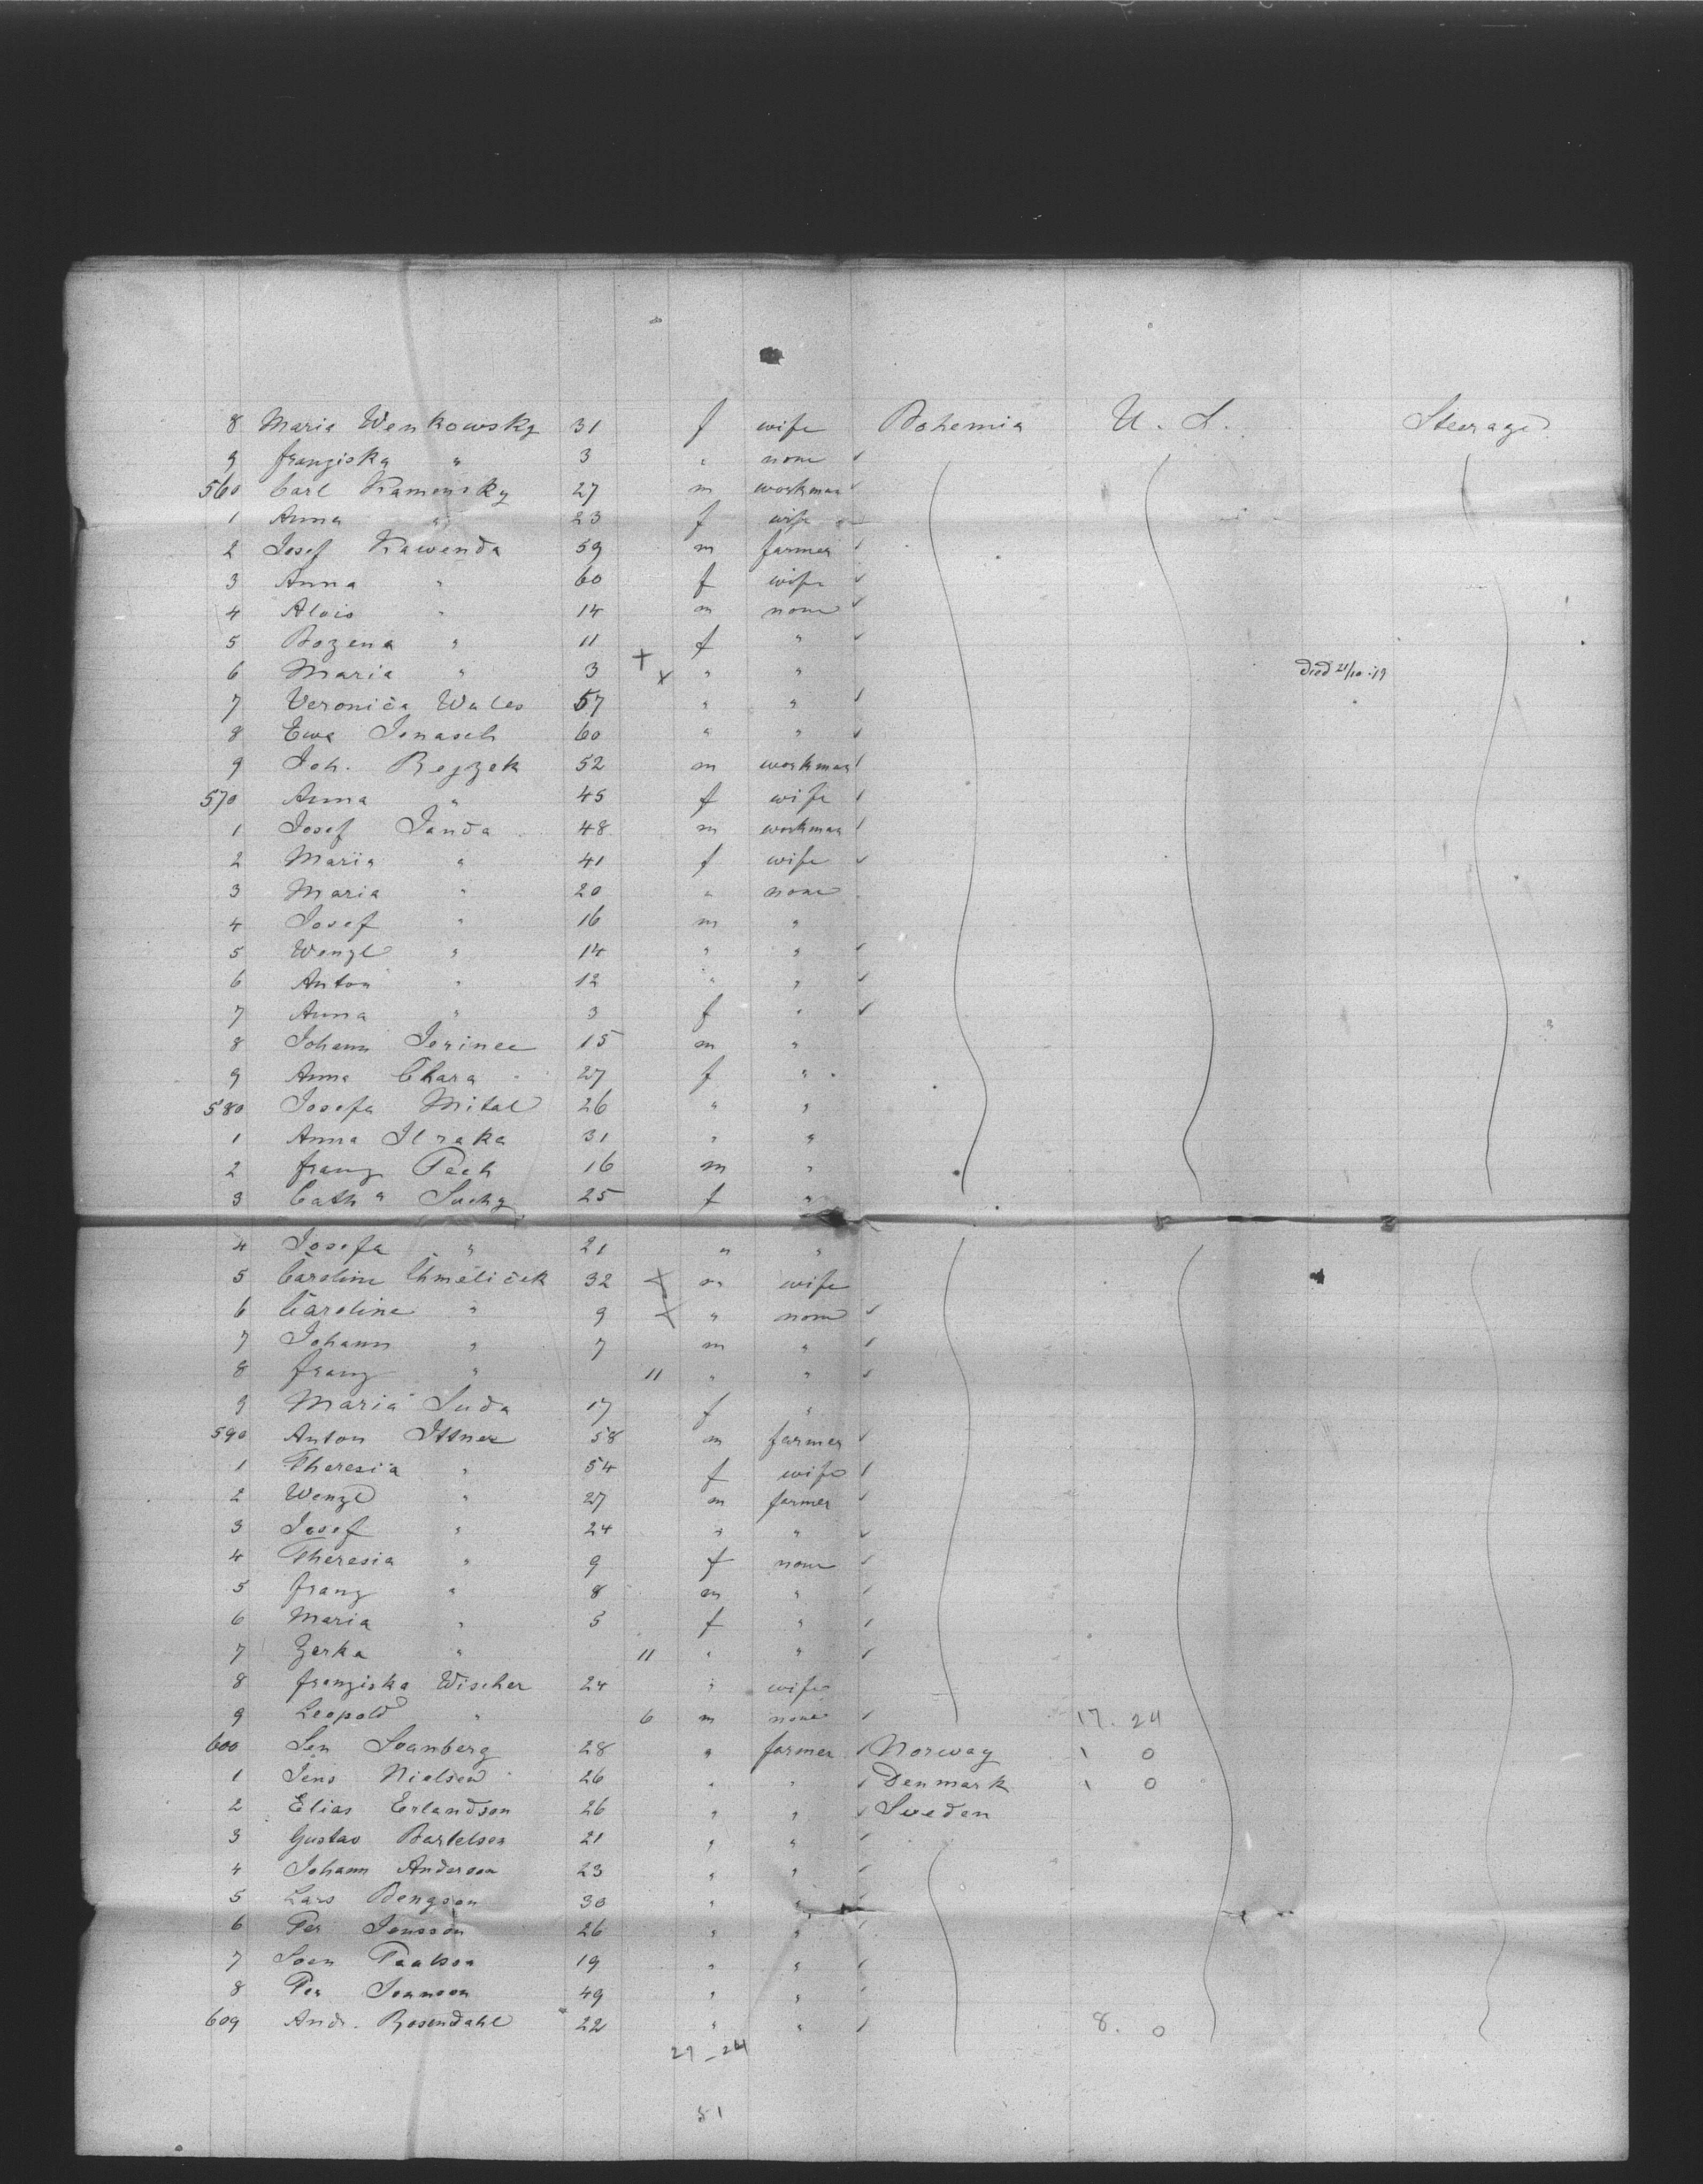 8 Maria Wenkowsky 31 f wife Bohemia U. S. Steerage
9 Franziska " 3 " none ✓
560 Carl Kamensky 27 m workman ✓
1 Anna " 23 f wife
2 Josef Kawenda 59 m farmer ✓
3 Anna " 60 f wife ✓
4 Alois " 14 m none ✓
5 Bozena " 11 f " ✓
6 Maria " 3 + x " " died 21/10
7 Veronica Wales 57 " " ✓
8 Ewa Jonasch 60 " " ✓
9 Joh. Rejzek 52 m workman ✓
570 Anna " 45 f wife ✓
1 Josef Janda 48 m workman ✓
2 Maria " 41 f wife ✓
3 Maria " 20 " none
4 Josef " 16 m "
5 Wenzl " 14 " " ✓
6 Anton " 12 " " ✓
7 Anna " 3 f " ✓
8 Johann Jerinec 15 m "
9 Anna Chara 27 f "
580 Josefa Mital 26 " "
1 Anna 31 " "
2 Franz Pech 16 m "
3 Cath " Suchy 25 f "
4 Josefa " 21 " "
5 Caroline Chmeliček 32 x m wife
6 Caroline " 9 x " none ✓
7 Johann " 7 m " ✓
8 Franz " 11 " " ✓
9 Maria Suda 17 f "
590 Anton Ittner 58 m farmer ✓
1 Theresia " 54 f wife ✓
2 Wenzl " 27 m farmer ✓
3 Josef " 24 " " ✓
4 Theresia " 9 f none ✓
5 Franz " 8 m " ✓
6 Maria " 5 f " ✓
7 Zerka " 11 " " ✓
8 Franziska Wischer 24 " wife
9 Leopold " 6 m none ✓ 17. 24
600 Sen Svanberg 28 " farmer ✓ Norway 1 0
1 Jens Nielsen 26 " " ✓ Denmark 1 0
2 Elias Erlandson 26 " " ✓ Sweden
3 Gustav Bartelsen 21 " " ✓
4 Johann Anderson 23 " " ✓
5 Lars Bengson 30 " " ✓
6 Per Jonsson 26 " " ✓
7 Sven Paalson 19 " " ✓
8 Per 49 " " ✓
609 Andr. Rosendahl 22 " " ✓ 8. 0
27 - 24
51